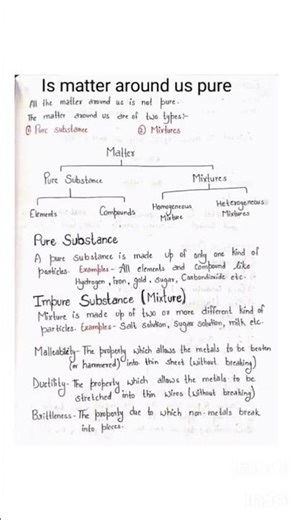 Is matter around us pure
All the matter around us is not pure.
The matter around us are of two types:-
① Pure substance ② Mixtures
Matter
Pure Substance Mixtures
Elements Compounds Homogeneous Mixture Heterogeneous Mixtures
Pure Substance
A pure substance is made up of only one kind of
particles. Examples - All elements and compound like
Hydrogen, iron, gold, sugar, Carbondioxide etc.
Impure Substance (Mixture)
Mixture is made up of two or more different kind of
particles. Examples - Salt solution, Sugar solution, milk etc.
Malleability - The property which allows the metals to be beaten
(or hammered) into thin sheet (without breaking)
Ductility - The property which allows the metals to be
stretched into thin wires (without breaking)
Brittleness - The property due to which non-metals break
into pieces.